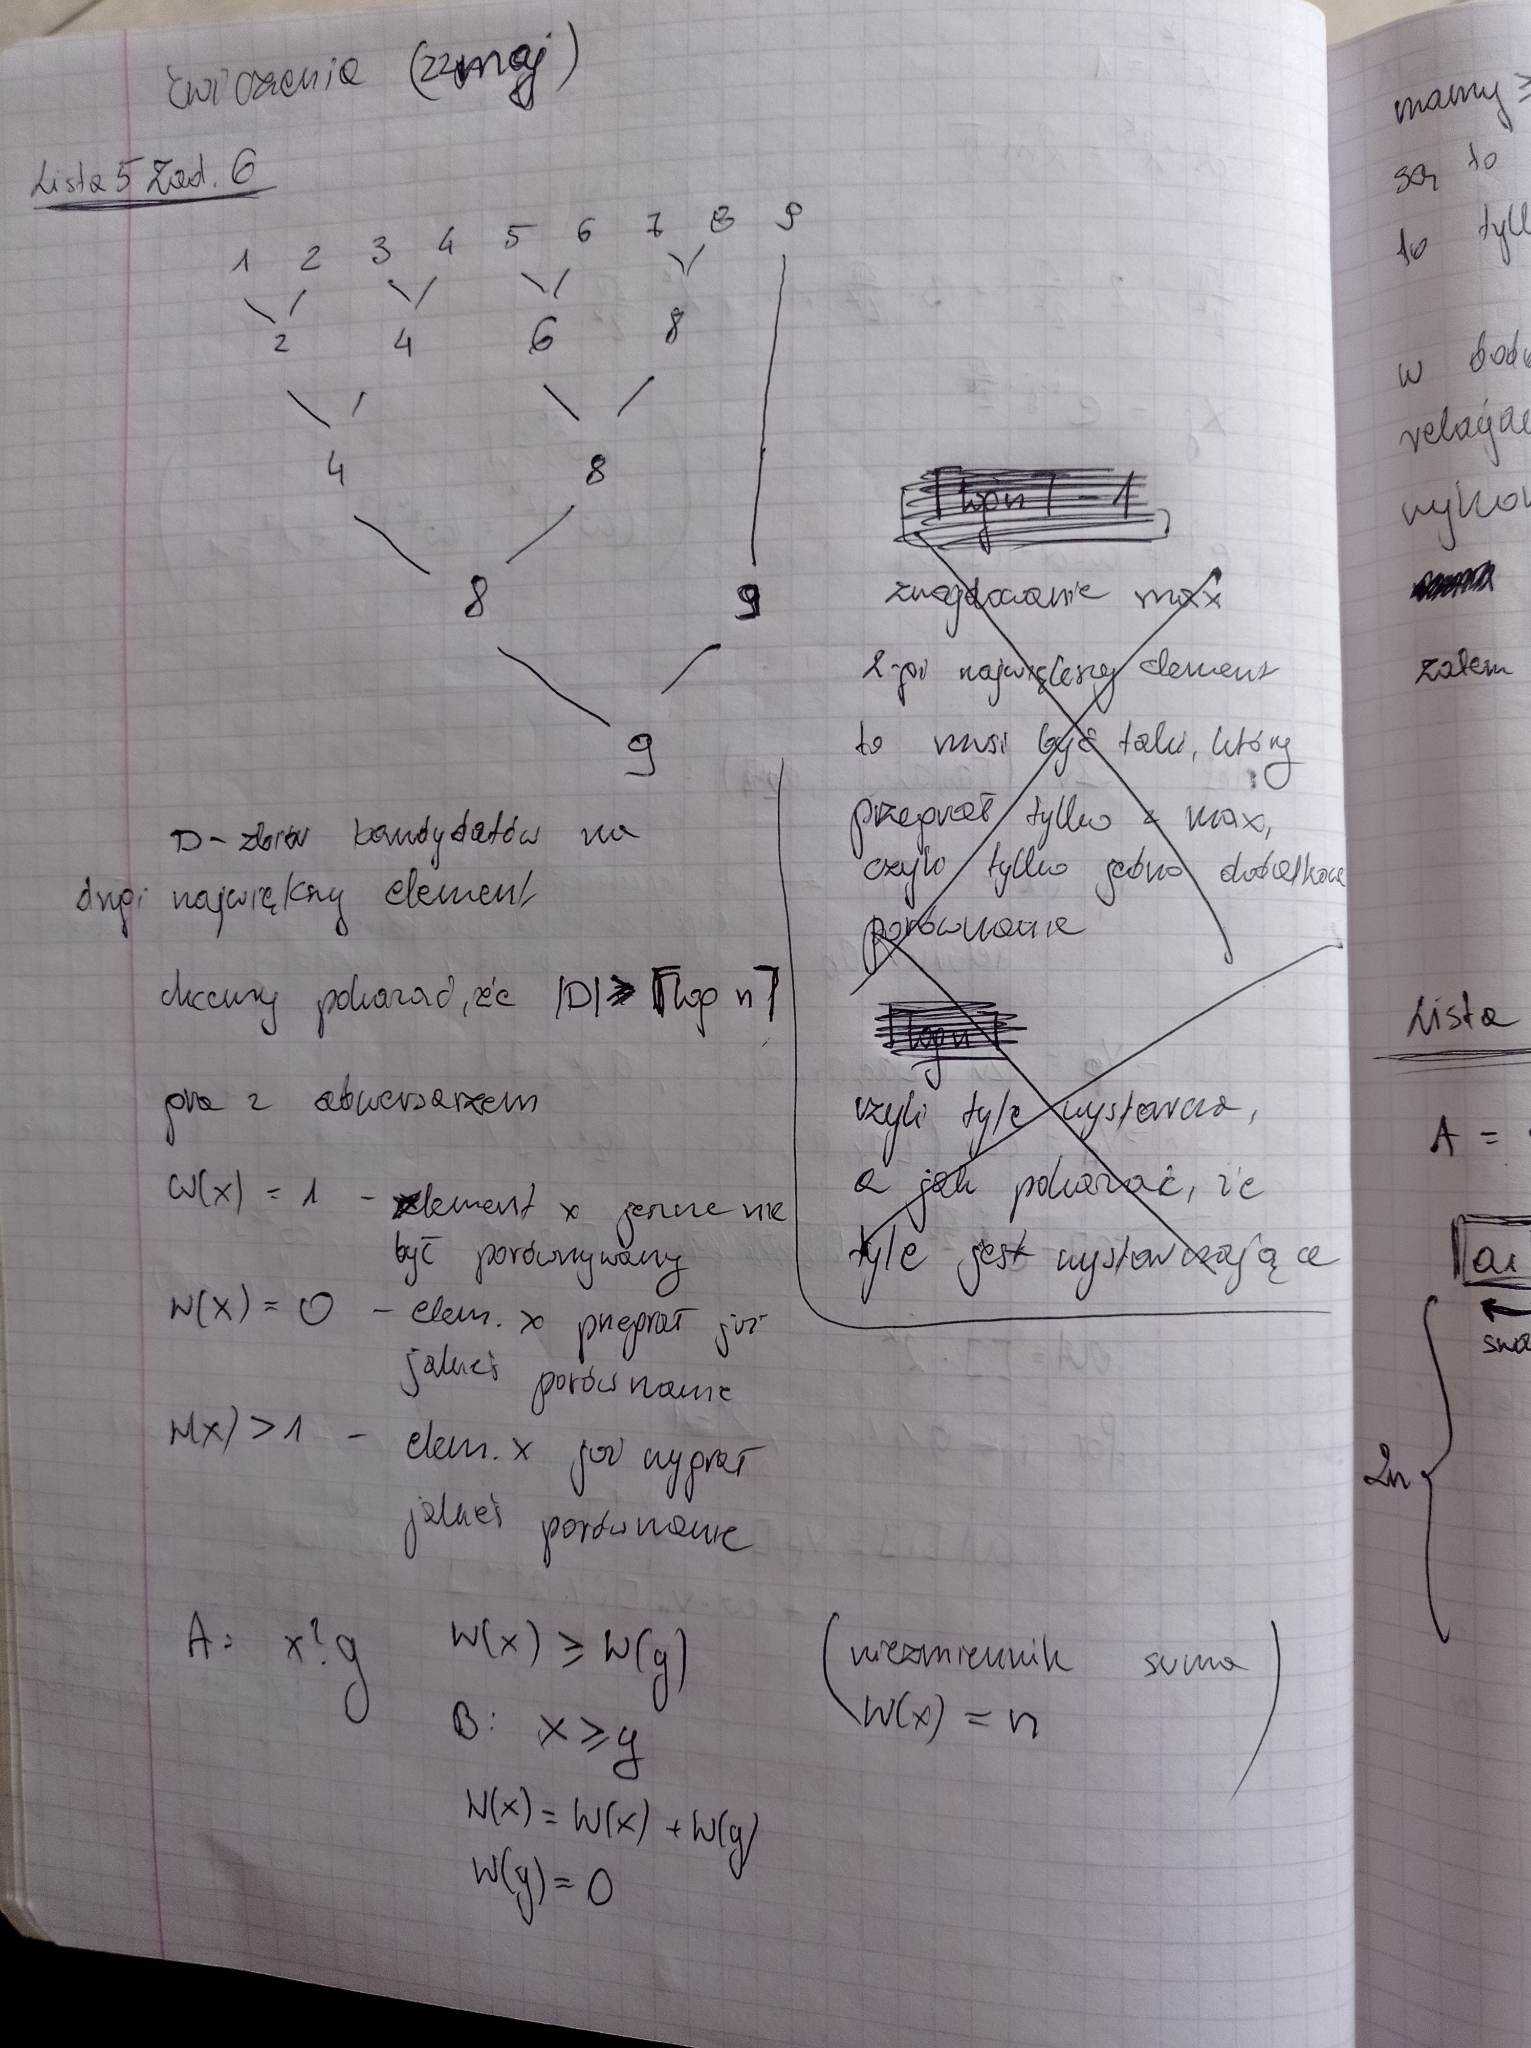 Ćwiczenia (22 maj)
Lista 5 Zad. 6
1 2 3 4 5 6 7 8 9
2 4 6 8
4 8
8 9
9
D - zbiór kandydatów na
drugi największy element
chcemy pokazać, że |D| ≥ ⌈log n⌉
gra z adwersarzem
W(x) = 1 - element x jeszcze nie
był porównywany
W(x) = 0 - elem. x przegrał już
jakieś porównanie
W(x) > 1 - elem. x już wygrał
jakieś porównanie
A: x ? y W(x) ≥ W(y)
B: x ≥ y
W(x) = W(x) + W(y)
W(y) = 0
(niezmiennik suma
W(x) = n)
⌈log n⌉ - 1
znajdowanie max
2-gi największy element
to musi być taki, który
przegrał tylko z max,
czyli tylko jedno dodatkowe
porównanie
⌈log n⌉
czyli tyle wystarcza,
a jak pokazać, że
tyle jest wystarczające
mamy ≥
są to
to
w
zatem
Lista
A =
2n